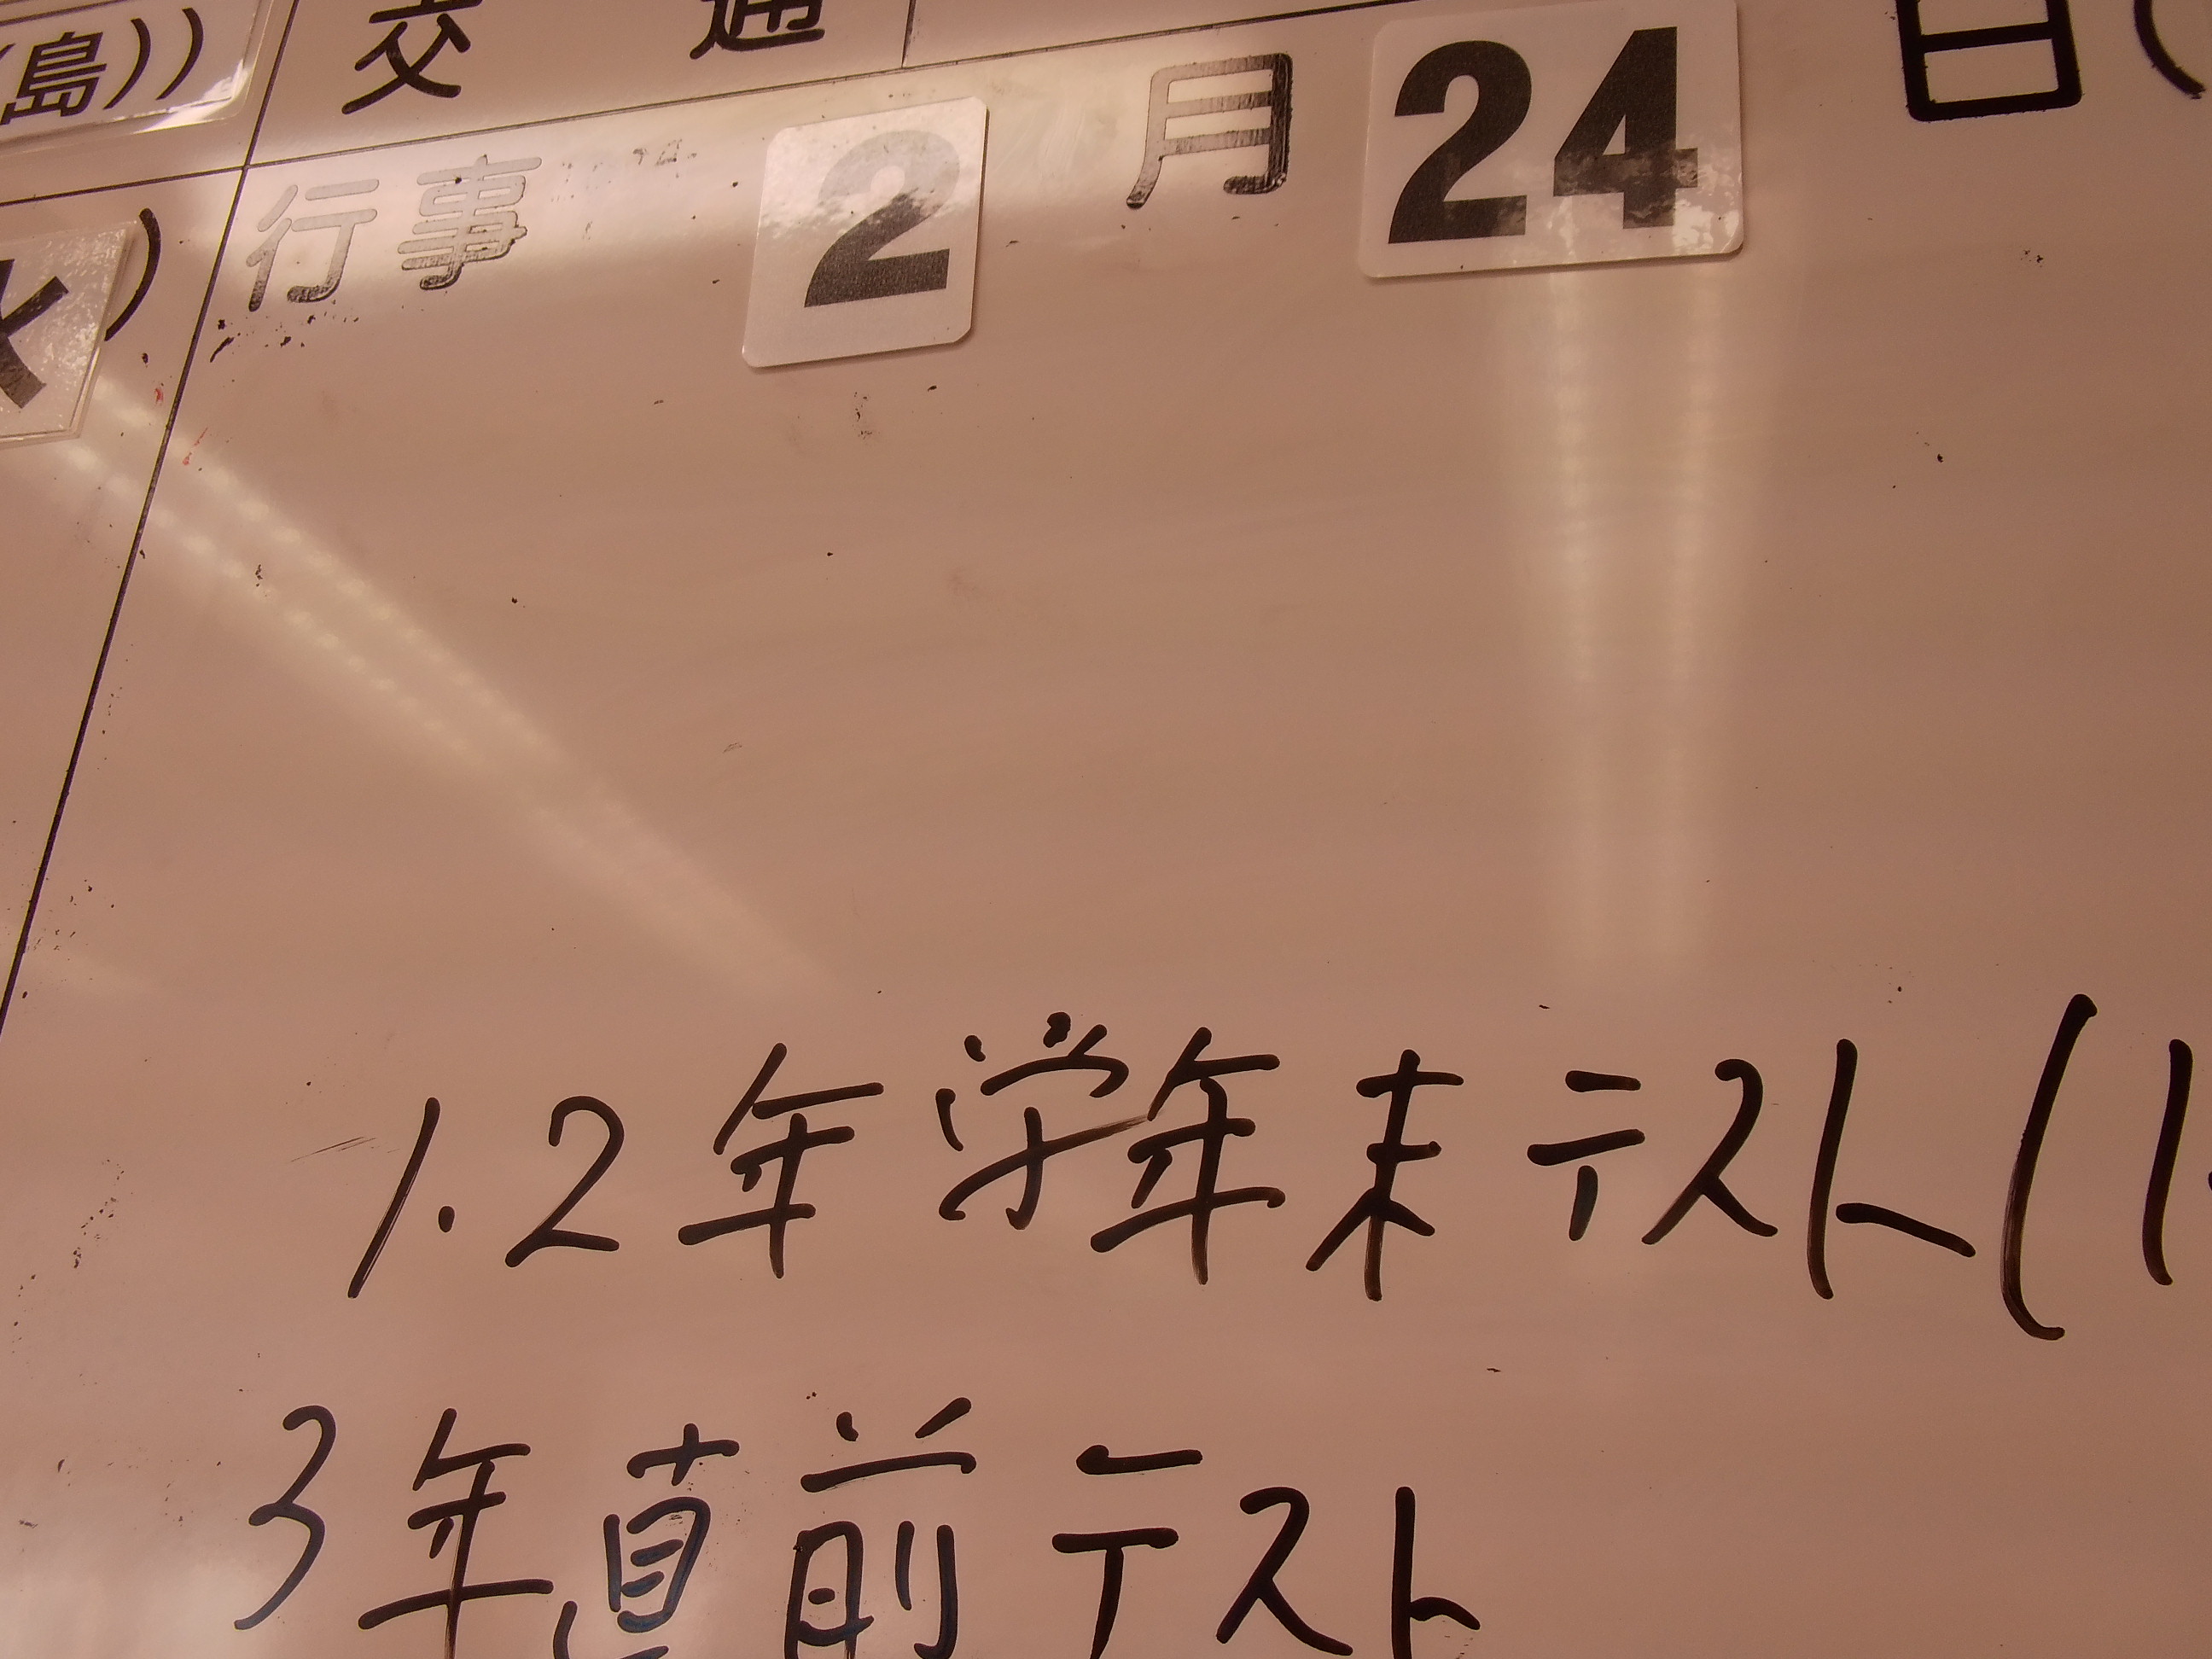 島)) 交通
行事 2月24日(
)
1.2年学年末テスト(1.
3年直前テスト